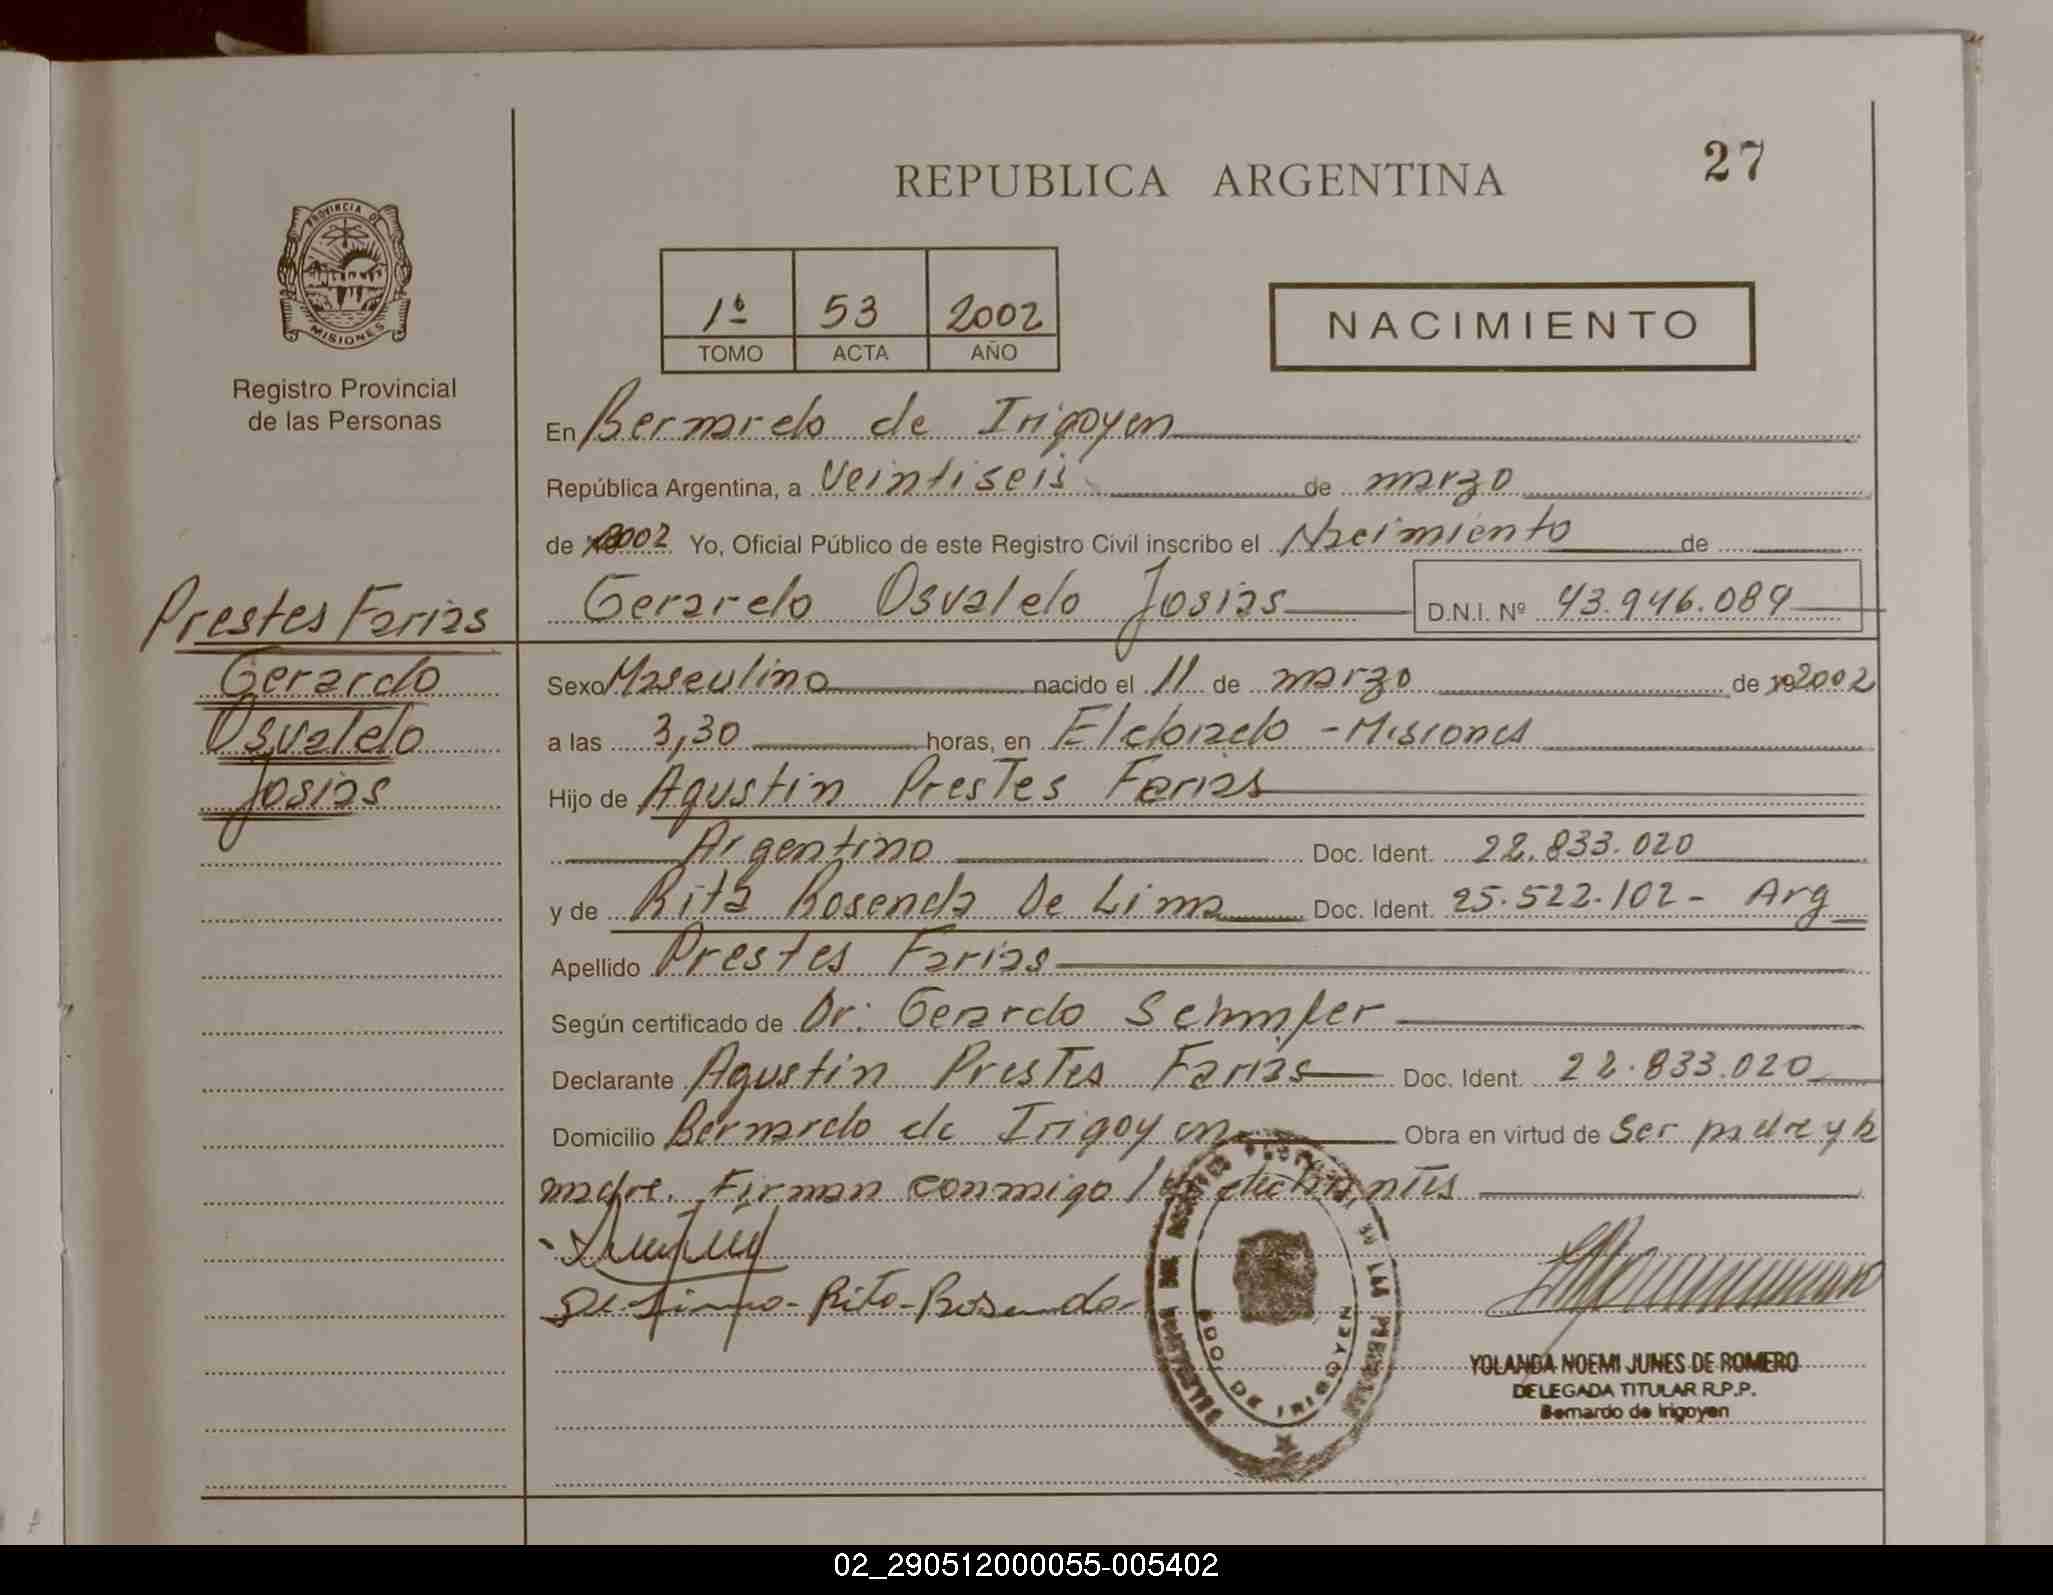 REPUBLICA ARGENTINA
27
PROVINCIA DE
MISIONES
Registro Provincial
de las Personas
1º 53 2002
TOMO ACTA AÑO
NACIMIENTO
En Bernardo de Irigoyen
República Argentina, a Veintiseis de marzo
de 2002 Yo, Oficial Público de este Registro Civil inscribo el Nacimiento de
Gerardo Osvaldo Josias D.N.I. Nº 43.946.089
Prestes Farias
Gerardo
Osvaldo
Josias
Sexo Masculino nacido el 11 de marzo de 2002
a las 3,30 horas, en Eldorado - Misiones
Hijo de Agustin Prestes Farias
Argentino Doc. Ident. 22.833.020
y de Rita Rosenda De Lima Doc. Ident. 25.522.102 - Arg
Apellido Prestes Farias
Según certificado de Dr: Gerardo
Declarante Agustin Prestes Farias Doc. Ident. 22.833.020
Domicilio Bernardo de Irigoyen Obra en virtud de Ser padre y la
madre. Firman conmigo los declarantes
De Lima - Rita - Rosenda
BDO. DE IRIGOYEN
YOLANDA NOEMI JUNES DE ROMERO
DELEGADA TITULAR R.P.P.
Bernardo de Irigoyen
02_290512000055-005402